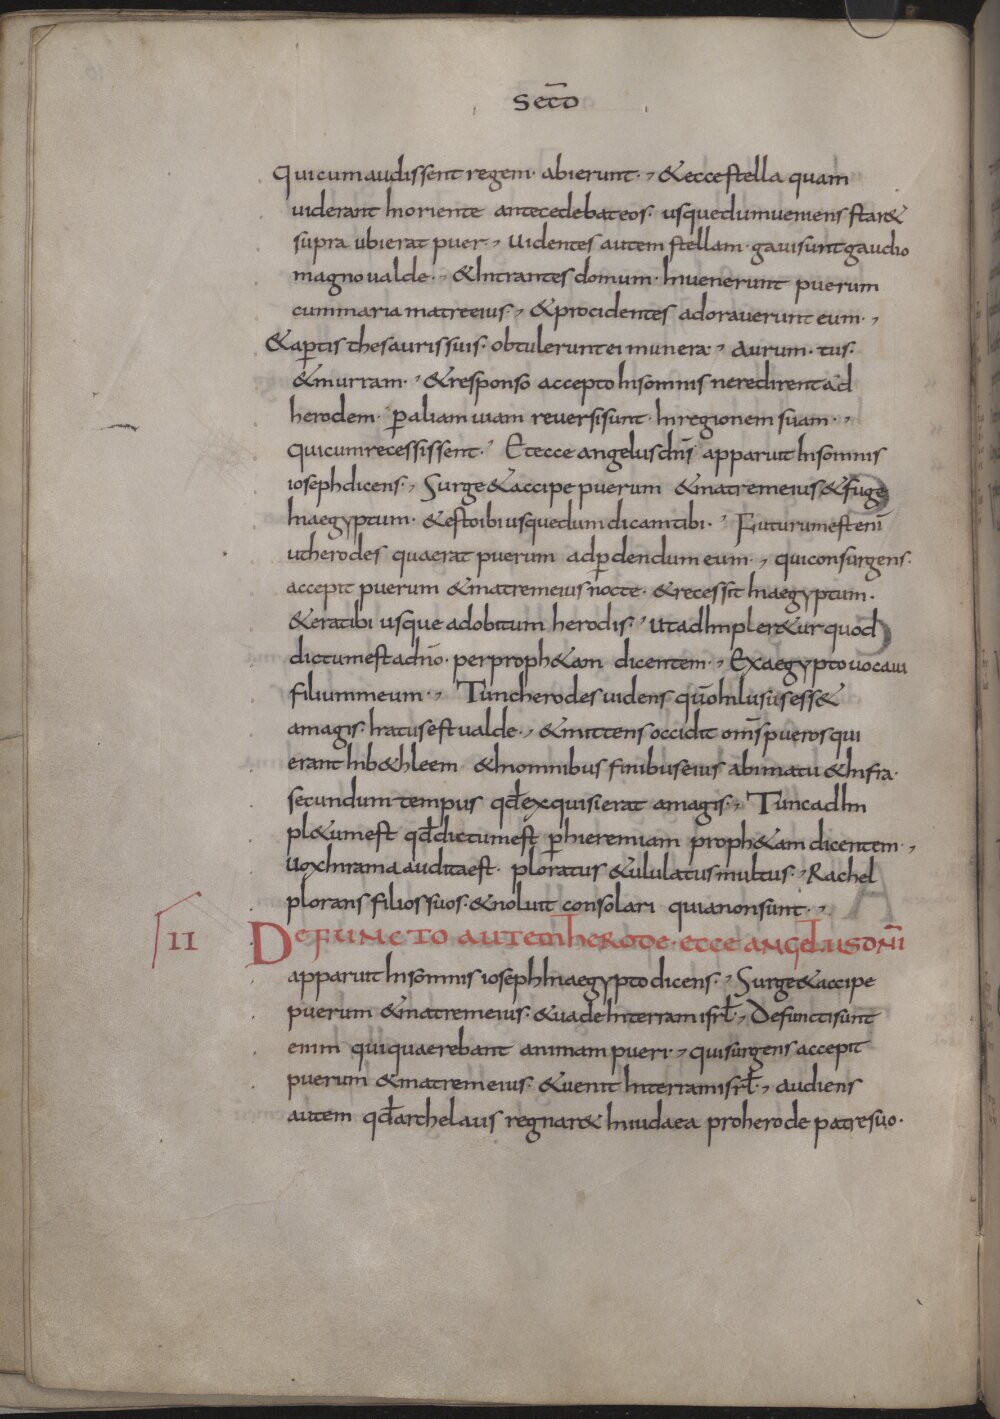 Secd̄
Quicumaudissent regem· abierunt·, &eccestella quam
uiderant Inoriente antecedebateos· usquedumueniens star&
supra ubierat puer·, Uidentes autem stellam· gauisuntgaudio
magnoualde·, &Intrantes domum· Inuenerunt puerum
cummaria matreeius·, &procidentes adorauerunt eum·,
&aꝑtis thesaurissuis· obtulerunteimunera·, Aurum· tus·
&murram·, &responso accepto Insomnis neredirentad
herodem· ꝑaliam uiam reuersisunt· Inregionem suam·,
quicumrecessissent·, Etecce angelusdn̄i apparuit Insomnis
iosephdicens·, Surge&accipe puerum &matremeius&fuge
Inaegyptum· &estoibiusquedumdicamtibi·, Futurumestenī
utherodes quaerat puerum adꝑdendumeum·, quiconsurgens·
accepit puerum &matremeius nocte· &recessit Inaegyptum·
&eratibi usque adobitum herodis·, Utadimpler&ur quod
dictumestadn̄o· perproph&am dicentem·, Exaegyptouocaui
filiummeum·, Tuncherodes uidens qūoInlusus ess&
amagis· Iratusestualde·, &mittens occidit om̄s pueros qui
erant Inb&hleem &Inomnibus finibuseius abimatu &Infra·
secundum tempus qđexquisierat amagis·, Tuncadim
pl&umest qđdictumest ꝑhieremiam proph&am dicentem·,
Uoxinrama auditaest· ploratus &ululatusmultus·, Rachel
plorans filiossuos· &noluit consolari quianonsunt·,
II Defuncto autem herode· ecce angelus dn̄i
apparuit Insomnis iosephInaegyptodicens·, Surge&accipe
puerum &matremeius· &uadeInterramisrł·, Defunctisunt
enim quiquaerebant animam pueri·, quisurgens accepit
puerum &matremeius· &uenit Interramisrł·, audiens
autem qđarchelaus regnar& Iniudaea proherode patresuo·